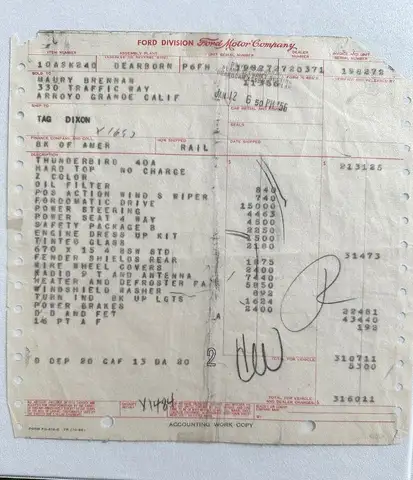 FORD DIVISION Ford Motor Company
10ASK240 DEARBORN P6FH 198272720371 198272
MAURY BRENNAN 11356
330 TRAFFIC WAY
ARROYO GRANDE CALIF
JAN 12 6 50 PM '56
TAG DIXON
BK OF AMER RAIL
THUNDERBIRD 40A 213125
HARD TOP NO CHARGE
2 COLOR
OIL FILTER 840
POS ACTION WIND S WIPER 740
FORDOMATIC DRIVE 15000
POWER STEERING 4463
POWER SEAT 4 WAY 4500
SAFETY PACKAGE B 2250
ENGINE DRESS UP KIT 2500
TINTED GLASS 2180
670 X 15 4 BSW STD 31473
FENDER SHIELDS REAR 1875
WIRE WHEEL COVERS 2400
RADIO 9 T AND ANTENNA 7440
HEATER AND DEFROSTER FA 5850
WINDSHIELD WASHER 892
TURN IND BK UP LGTS 1624
POWER BRAKES 2400 22481
D D AND FET 43440
14 PT A F 192
D DEP 20 CAF 13 DA 20
2
TOTAL FOR VEHICLE 310711
5300
316011
Y1484
ACCOUNTING WORK COPY